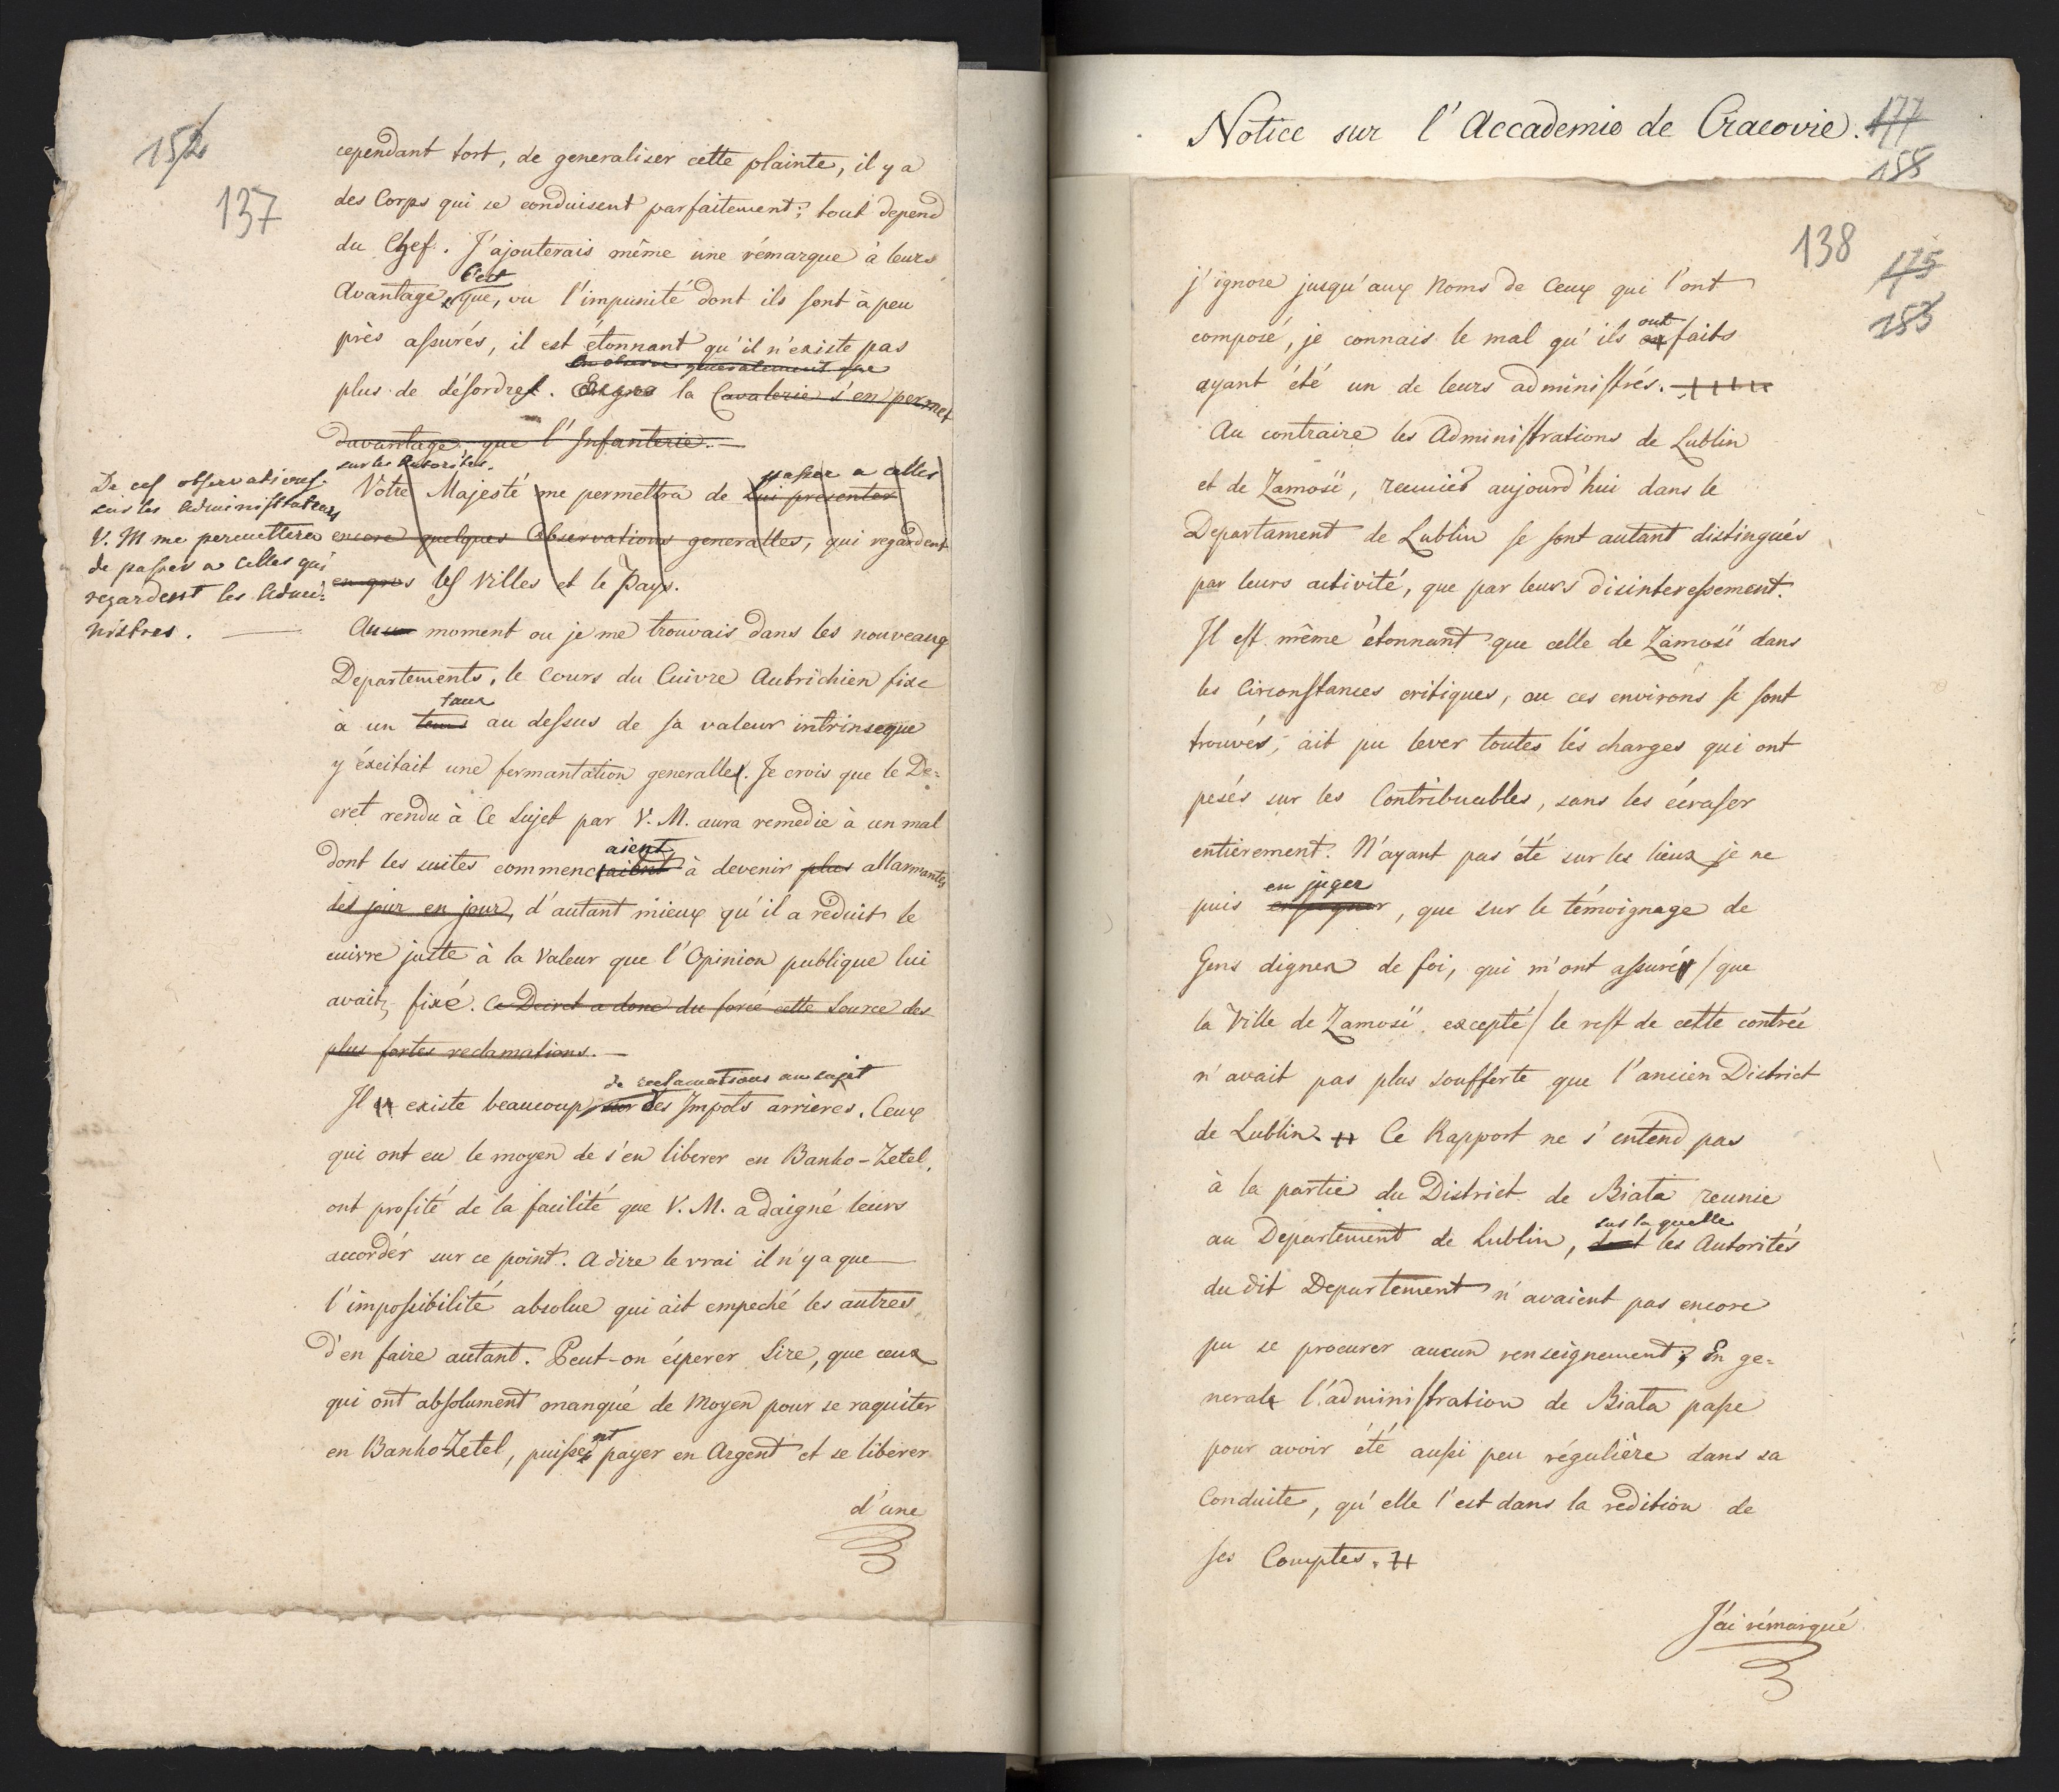 152
137
cependant tort, de generaliser cette plainte, il y a
des Corps qui se conduisent parfaitement; tout depend
du Chef. J'ajouterais même une rémarque à leurs
C'est
Avantage, que, vu l'impunité dont ils sont à peu
près assurés, il est étonnant qu'il n'existe pas
On observe generalement que
plus de désordres. En gros la Cavalerie s'en permet
davantage que l'Infanterie.
sur les Autorités.
passer a celles
Vôtre Majesté me permettra de lui presenter
encore quelques Observations generalles, qui regardent
en gros les Villes et le Pays.
De ces observations
sur les Administrateurs
V. M me permettera
de passer a celles qui
regardent les Admi-
nistres.
Au moment ou je me trouvais dans les nouveaux
Departements, le Cours du Cuivre Autrichien fixe
taux
à un au dessus de sa valeur intrinseque
y éxcitait une fermantation generalle. Je crois que le De-
cret rendu à Ce Sujet par V. M. aura remedié à un mal
aient
dont les suites commençaient à devenir plus allarmantes
des jour en jour, d'autant mieux qu'il a reduit le
cuivre juste à la Valeur que l'Opinion publique lui
avait fixé. Ce Decret a donc du forcé cette Source des
plus fortes reclamations.
de reclamations au sujet
Il existe beaucoup sur des Impots arrières. Ceux
qui ont eu le moyen de s'en liberer en Banko-Zetel,
ont profité de la facilité que V. M. a daigné leurs
accordér sur ce point. A dire le vrai il n'y a que
l'impossibilité absolue qui ait empeché les autres
d'en faire autant. Peut-on éspérer Sire, que ceux
qui ont absolument manqué de Moyen pour se raquiter
nt
en Banko-Zetel, puisse payer en Argent et se liberer
d'une
Notice sur l'Accademie de Cracovie.
177
188
138
175
183
j'ignore jusqu'aux Noms de Ceux qui l'ont
ont
composé, je connais le mal qu'ils faits
ayant été un de leurs administrés.
Au contraire les Administrations de Lublin
et de Zamosć, reunies aujourd'hui dans le
Departament de Lublin se sont autant distingués
par leurs activité, que par leurs disinteressement.
Il est même étonnant que celle de Zamosć dans
les Circonstances critiques, ou ces environs se sont
trouvés, ait pu lever toutes les charges qui ont
pesés sur les Contribuables, sans les écraser
entièrement. N'ayant pas été sur les lieux je ne
en juger
puis, que sur le témoignage de
Gens dignes de foi, qui m'ont assurés / que
la Ville de Zamosć excepté / le rest de cette contrée
n'avait pas plus soufferte que l'ancien District
de Lublin. Ce Rapport ne s'entend pas
à la partie du District de Biała reunie
sur la quelle
au Departement de Lublin, dont les Autorités
du dit Departement n'avaient pas encore
pu se procurer aucun renseignement; En ge-
nerale l'administration de Biała passe
pour avoir été aussi peu régulière dans sa
Conduite, qu'elle l'est dans la redition de
ses Comptes.
J'ai rémarqué